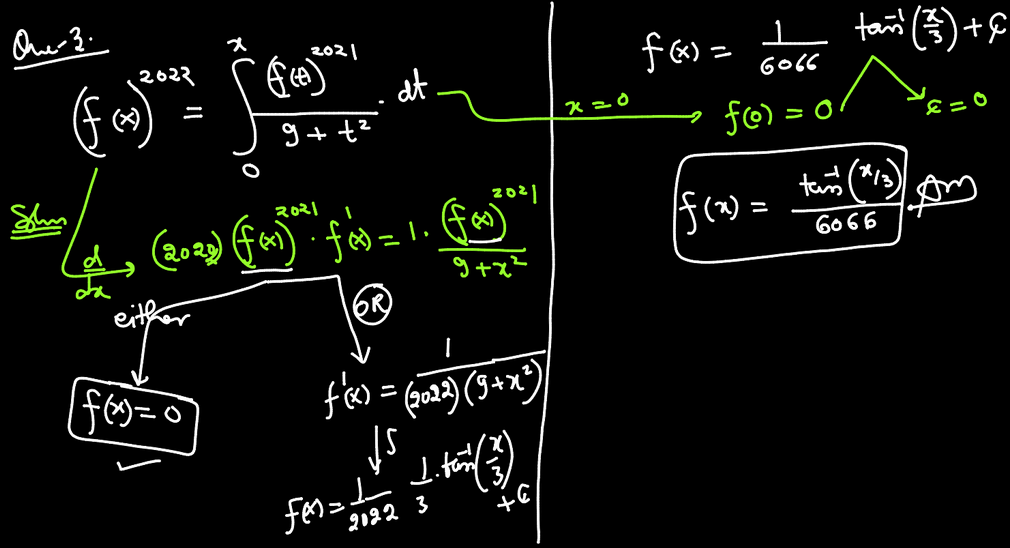 Que-3.
(f(x))^2022 = ∫_0^x (f(t))^2021 / (9 + t²) . dt
Soln
d/dx → (2022) (f(x))^2021 . f'(x) = 1 . (f(x))^2021 / (9+x²)
either
OR
f(x) = 0
f'(x) = 1 / (2022)(9+x²)
↓∫
f(x) = 1/2022 1/3 . tan⁻¹(x/3) + C
f(x) = 1/6066 tan⁻¹(x/3) + C
x = 0 → f(0) = 0
C = 0
f(x) = tan⁻¹(x/3) / 6066 . Ans